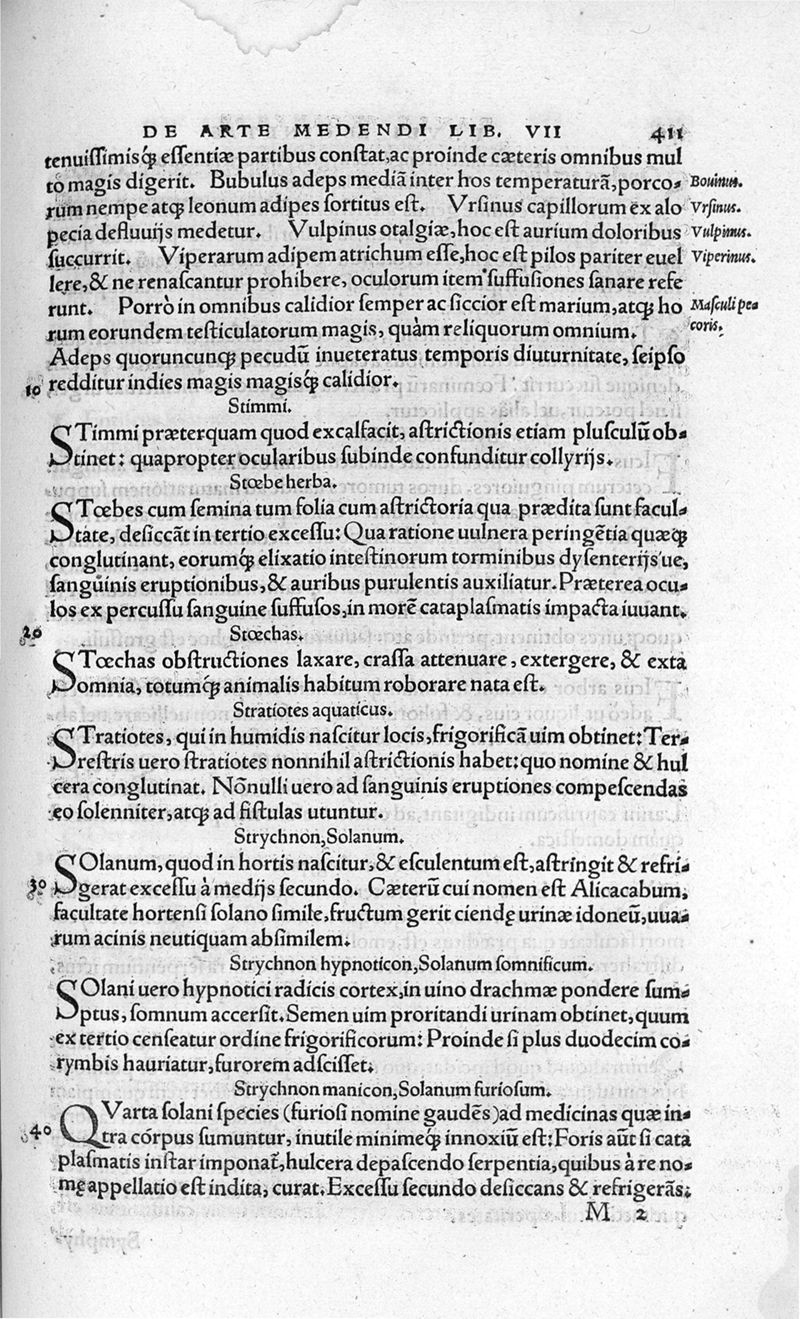 DE ARTE MEDENDI LIB. VII 411
tenuiſſimisq́ꝫ eſſentiæ partibus conſtat,ac proinde cæteris omnibus mul
to magis digerit. Bubulus adeps mediā inter hos temperaturā,porco- Bouinus.
rum nempe atqꝫ leonum adipes ſortitus eſt. Vrſinus capillorum ex alo Vrſinus.
pecia defluuijs medetur. Vulpinus otalgiæ,hoc eſt aurium doloribus Vulpinus.
ſuccurrit. Viperarum adipem atrichum eſſe,hoc eſt pilos pariter euel Viperinus.
lere,& ne renaſcantur prohibere, oculorum item ſuffuſiones ſanare refe
runt. Porrò in omnibus calidior ſemper ac ſiccior eſt marium,atqꝫ ho Maſculi pe-
rum eorundem teſticulatorum magis, quàm reliquorum omnium. coris.
Adeps quoruncunqꝫ pecudū inueteratus temporis diuturnitate, ſeipſo
10 redditur indies magis magisq́ꝫ calidior.
Stimmi.
STimmi præterquam quod excalfacit, aſtrictionis etiam pluſculū ob-
tinet: quapropter ocularibus ſubinde confunditur collyrijs.
Stœbe herba.
STœbes cum ſemina tum folia cum aſtrictoria qua prædita ſunt facul-
tate, deſiccāt in tertio exceſſu: Qua ratione uulnera peringētia quæqꝫ
conglutinant, eorumq́ꝫ elixatio inteſtinorum torminibus dyſenterijs'ue,
ſanguinis eruptionibus,& auribus purulentis auxiliatur. Præterea ocu-
los ex percuſſu ſanguine ſuffuſos,in morē cataplaſmatis impacta iuuant.
20 Stœchas.
STœchas obſtructiones laxare, craſſa attenuare, extergere, & exta
omnia, totumq́ꝫ animalis habitum roborare nata eſt.
Stratiotes aquaticus.
STratiotes, qui in humidis naſcitur locis,frigorificā uim obtinet: Ter-
reſtris uero ſtratiotes nonnihil aſtrictionis habet: quo nomine & hul
cera conglutinat. Nōnulli uero ad ſanguinis eruptiones compeſcendas
eo ſolenniter,atqꝫ ad fiſtulas utuntur.
Strychnon,Solanum.
SOlanum, quod in hortis naſcitur,& eſculentum eſt,aſtringit & refri-
30 gerat exceſſu à medijs ſecundo. Cæterū cui nomen eſt Alicacabum,
facultate hortenſi ſolano ſimile,fructum gerit ciendę urinæ idoneū,uua-
rum acinis neutiquam abſimilem.
Strychnon hypnoticon,Solanum ſomnificum.
SOlani uero hypnotici radicis cortex,in uino drachmæ pondere ſum-
ptus, ſomnum accerſit. Semen uim proritandi urinam obtinet, quum
ex tertio cenſeatur ordine frigorificorum: Proinde ſi plus duodecim co-
rymbis hauriatur,furorem adſciſſet.
Strychnon manicon,Solanum furioſum.
QVarta ſolani ſpecies (furioſi nomine gaudēs)ad medicinas quæ in-
40 tra córpus ſumuntur, inutile minimeq́ꝫ innoxiū eſt: Foris aūt ſi cata
plaſmatis inſtar imponat̃,hulcera depaſcendo ſerpentia,quibus à re no-
mę appellatio eſt indita, curat. Exceſſu ſecundo deſiccans & refrigerās.
M 2